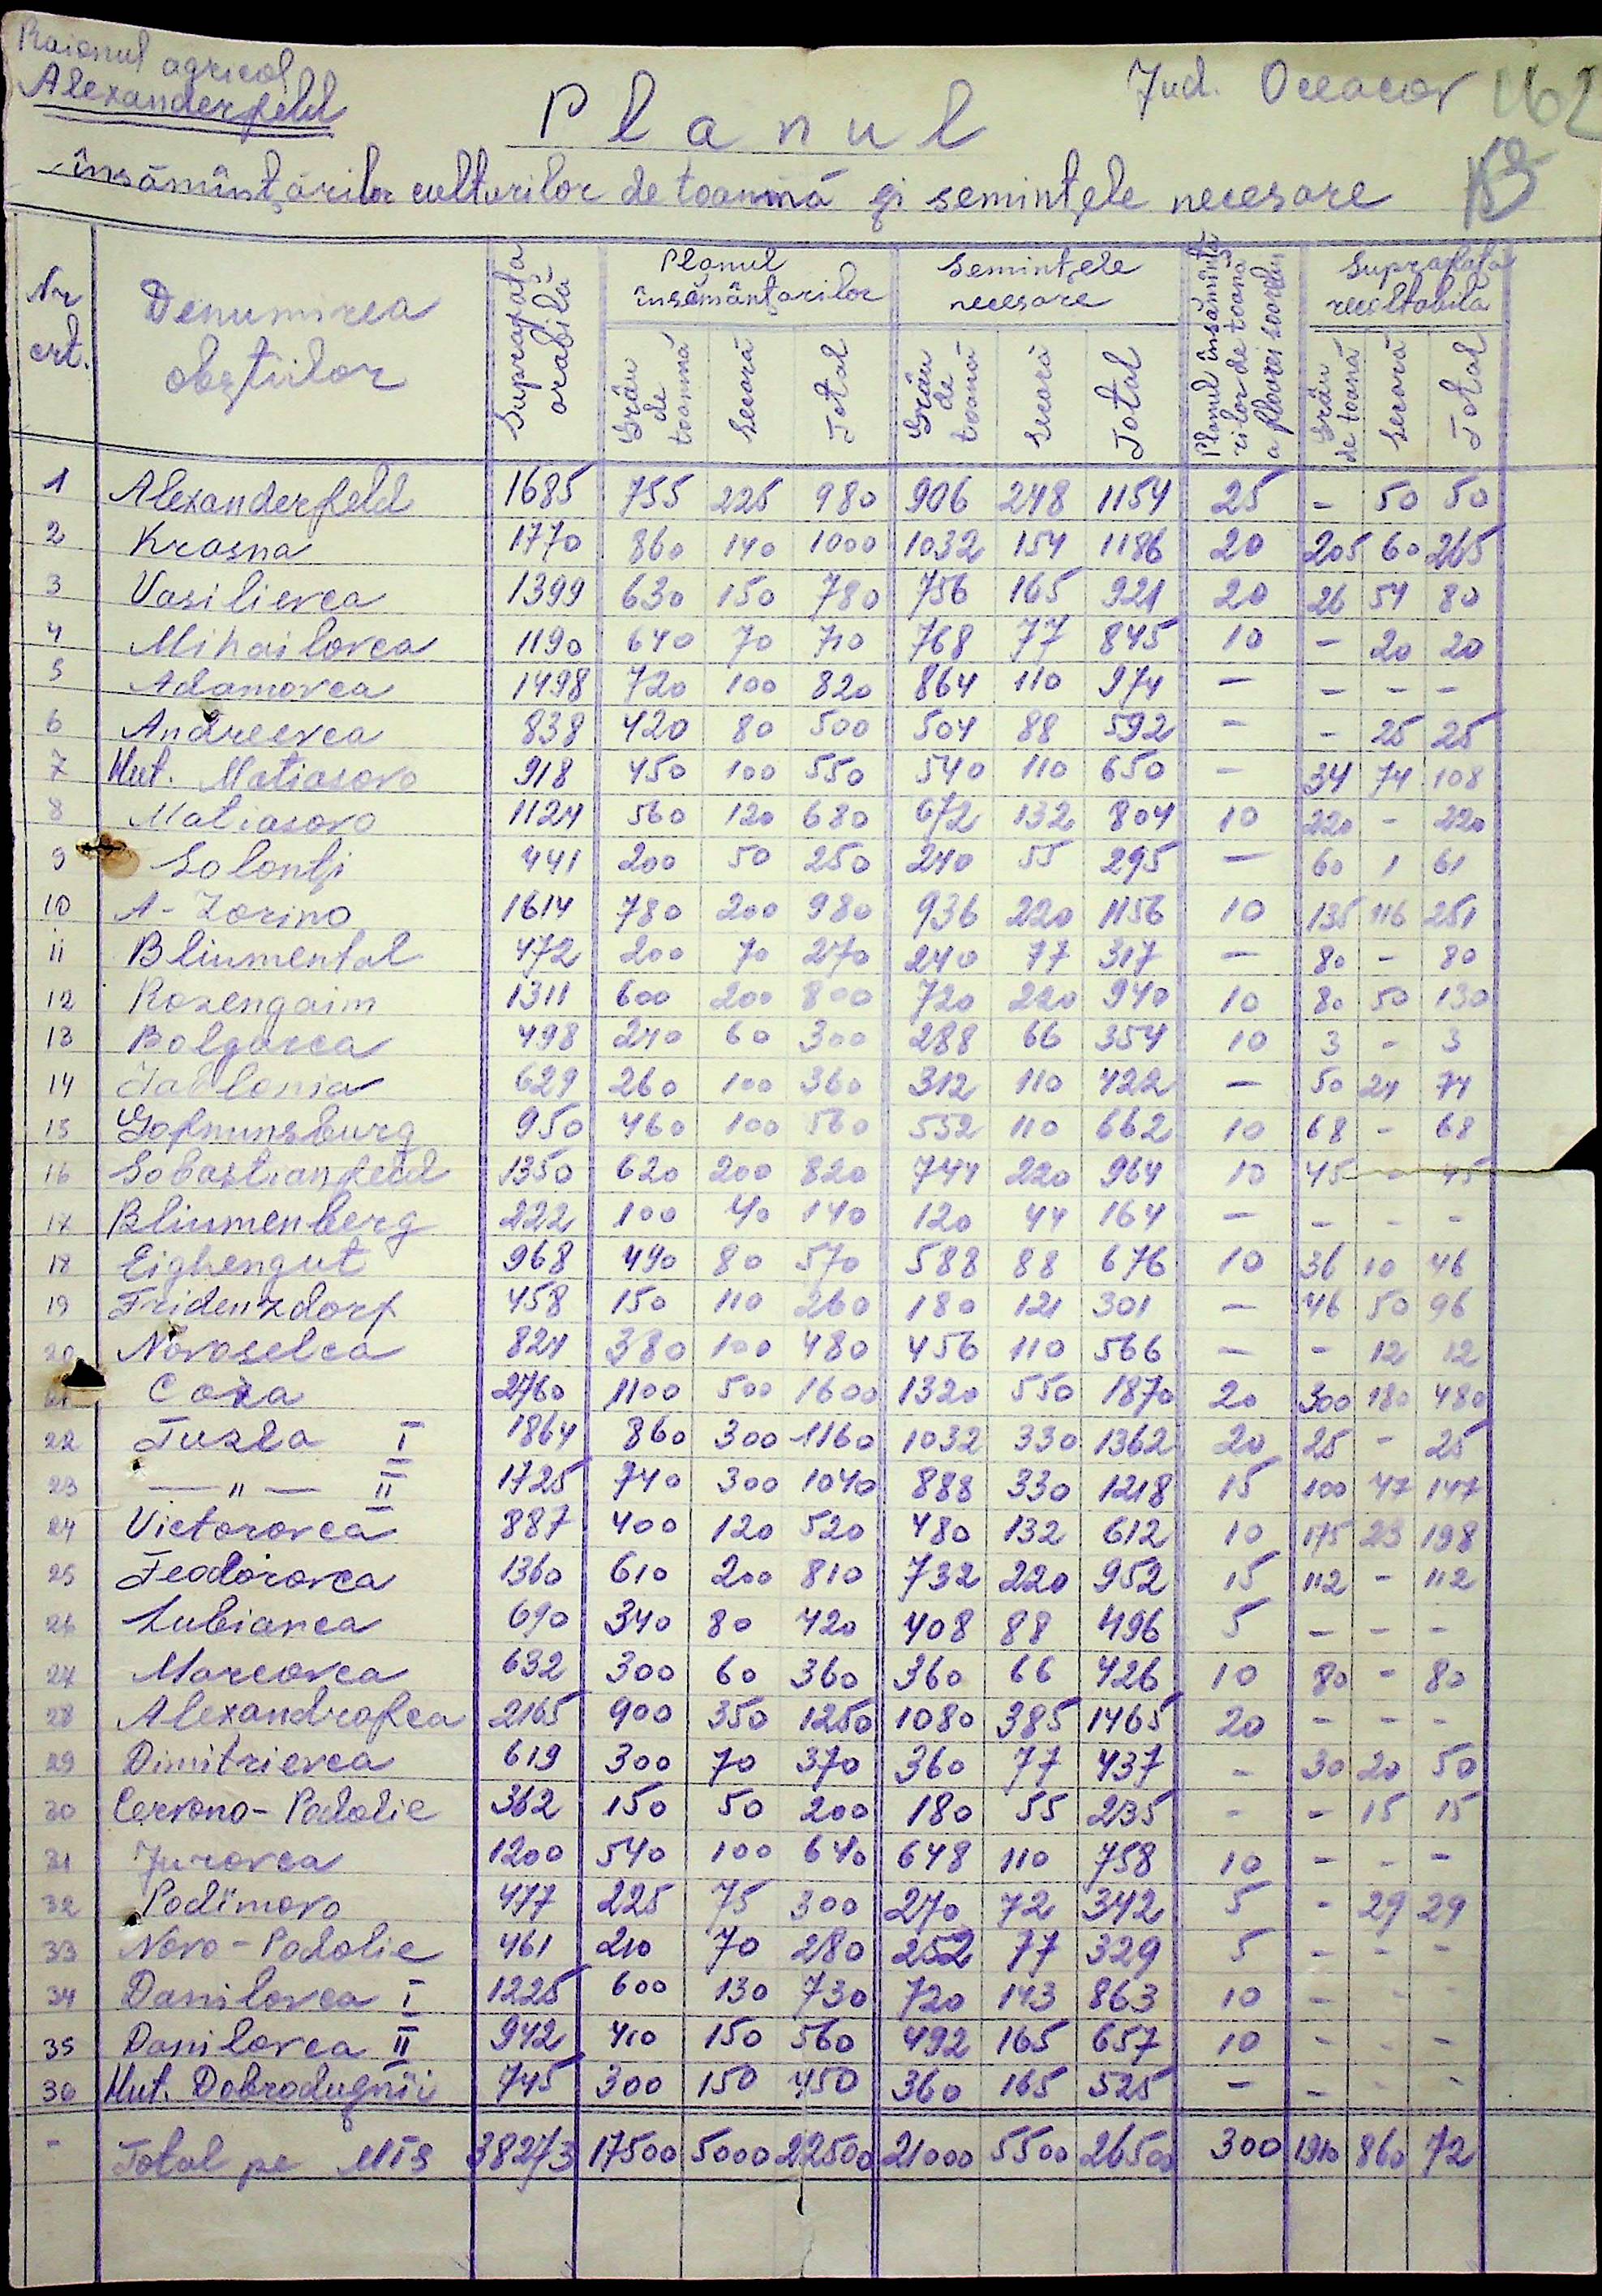 Raionul agricol
Alexanderfeld
Jud. Oceacov 162
Planul
însămînțărilor culturilor de toamnă și semințele necesare
Nr crt. Denumirea obștiilor Suprafața arabilă Planul însămânțarilor Semințele necesare Planul însămînțărilor de toamna a floarei soarelui Suprafața recoltabilă
Grâu de toamnă Secară Total Grâu de toamnă Secară Total Grâu de toamnă Secară Total
1 Alexanderfeld 1685 755 225 980 906 248 1154 25 - 50 50
2 Krasna 1770 860 140 1000 1032 154 1186 20 205 60 265
3 Vasilievca 1399 630 150 780 756 165 921 20 26 54 80
4 Mihailovca 1190 640 70 710 768 77 845 10 - 20 20
5 Adamovca 1498 720 100 820 864 110 974 - - - -
6 Andreevca 838 420 80 500 504 88 592 - - 25 25
7 Hut. Matiasovo 918 450 100 550 540 110 650 - 34 74 108
8 Matiasovo 1124 560 120 680 672 132 804 10 220 - 220
9 Solonți 441 200 50 250 240 55 295 - 60 1 61
10 A-Zorino 1614 780 200 980 936 220 1156 10 135 116 251
11 Bliumental 472 200 70 270 240 77 317 - 80 - 80
12 Rozengaim 1311 600 200 800 720 220 940 10 80 50 130
13 Bolgarca 498 240 60 300 288 66 354 10 3 - 3
14 Iablonia 629 260 100 360 312 110 422 - 50 24 74
15 Gofnunsburg 950 460 100 560 552 110 662 10 68 - 68
16 Sobastianfeld 1350 620 200 820 744 220 964 10 45 - 45
17 Bliumenberg 222 100 40 140 120 44 164 - - - -
18 Eighengut 968 490 80 570 588 88 676 10 36 10 46
19 Fridenzdorf 458 150 110 260 180 121 301 - 46 50 96
20 Novoselca 824 380 100 480 456 110 566 - - 12 12
21 Coxa 2760 1100 500 1600 1320 550 1870 20 300 180 480
22 Tuzla I 1864 860 300 1160 1032 330 1362 20 25 - 25
23 — " — II 1725 740 300 1040 888 330 1218 15 100 47 147
24 Victorovca 887 400 120 520 480 132 612 10 175 23 198
25 Feodorovca 1360 610 200 810 732 220 952 15 112 - 112
26 Lubianca 690 340 80 420 408 88 496 5 - - -
27 Marcovca 632 300 60 360 360 66 426 10 80 - 80
28 Alexandrofca 2165 900 350 1250 1080 385 1465 20 - - -
29 Dimitrievca 619 300 70 370 360 77 437 - 30 20 50
30 Cervono-Podolie 362 150 50 200 180 55 235 - - 15 15
31 Jurovca 1200 540 100 640 648 110 758 10 - - -
32 Podîmovo 417 225 75 300 270 72 342 5 - 29 29
33 Novo-Podolie 461 210 70 280 252 77 329 5 - - -
34 Danilovca I 1225 600 130 730 720 143 863 10 - - -
35 Danilovca II 942 410 150 560 492 165 657 10 - - -
36 Hut. Dobrodugnîi 745 300 150 450 360 165 525 - - - -
- Total pe MTS 38273 17500 5000 22500 21000 5500 26500 300 1910 860 72